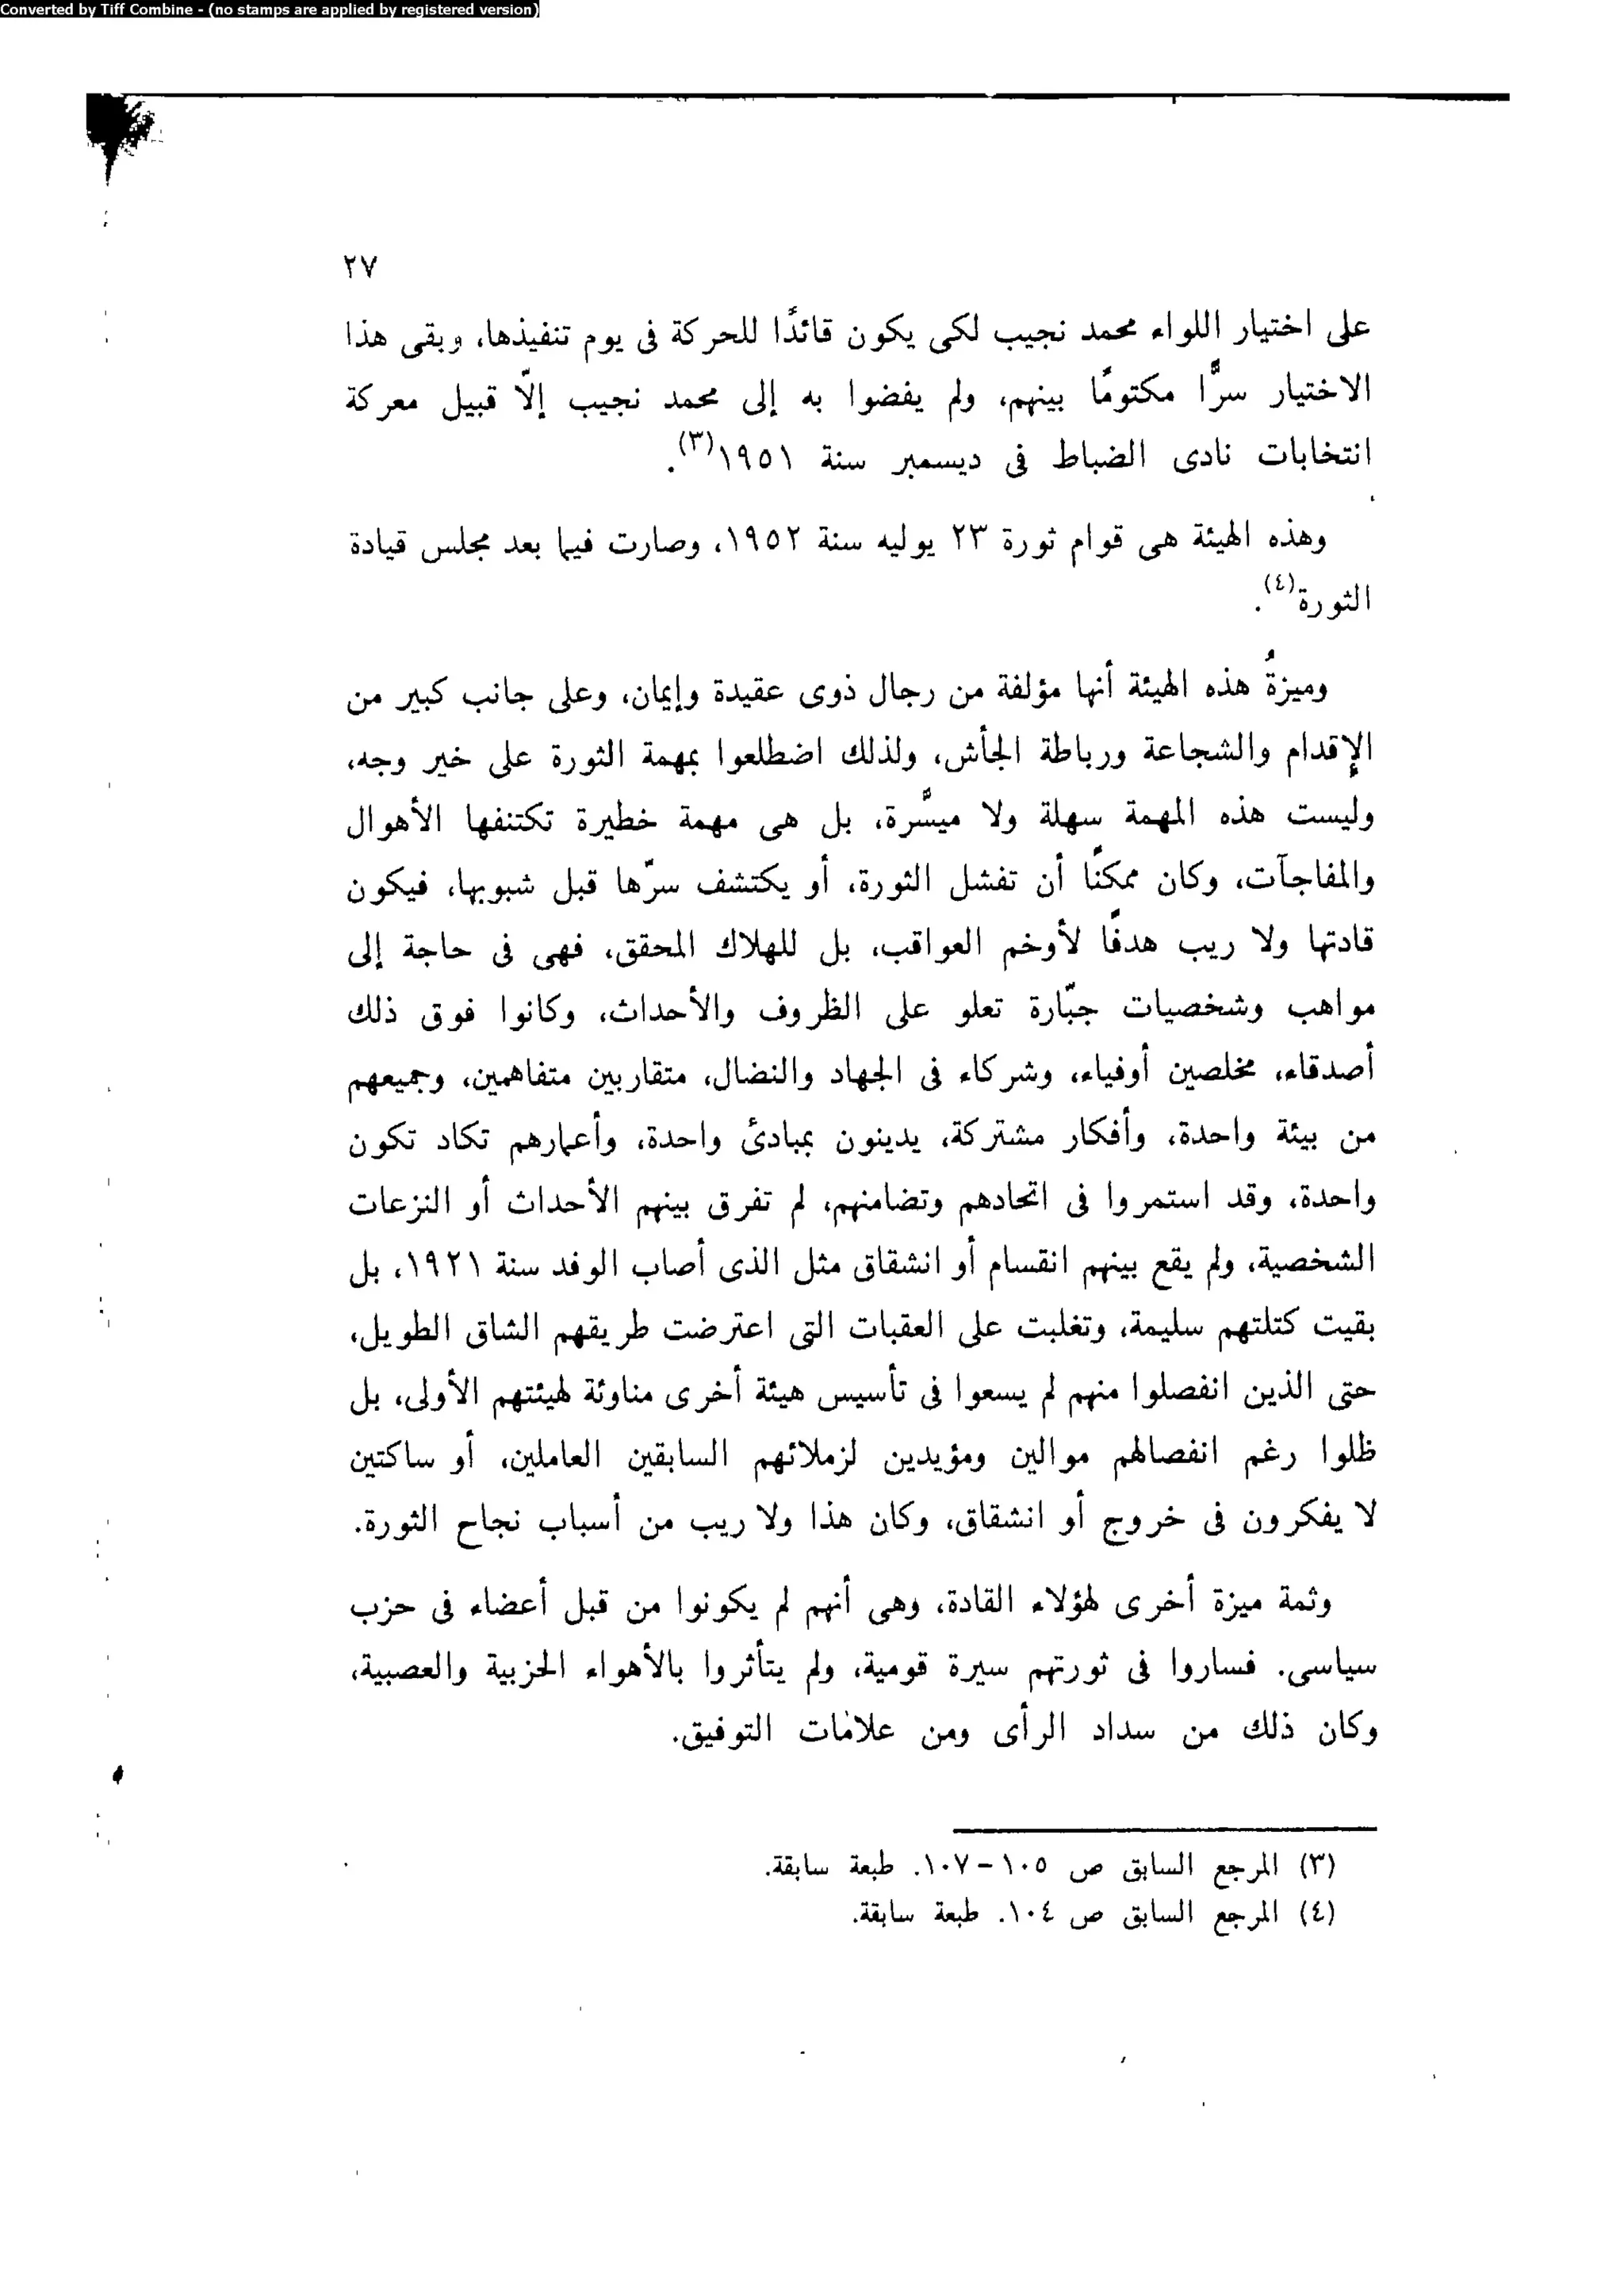 Converted by Tiff Combine - (no stamps are applied by registered version)
٢٧
على اختيار اللواء محمد نجيب لكى يكون قائدًا للحركة فى يوم تنفيذها، وبقى هذا
الاختيار سرًّا مكتومًا بينهم، ولم يفضوا به إلى محمد نجيب إلّا قبيل معركة
انتخابات نادى الضباط فى ديسمبر سنة ١٩٥١(٣).
وهذه الهيئة هى قوام ثورة ٢٣ يوليه سنة ١٩٥٢، وصارت فيما بعد مجلس قيادة
الثورة(٤).
وميزةُ هذه الهيئة أنها مؤلفة من رجال ذوى عقيدة وإيمان، وعلى جانب كبير من
الإقدام والشجاعة ورباطة الجأش، ولذلك اضطلعوا بمهمة الثورة على خير وجه،
وليست هذه المهمة سهلة ولا ميسَّرة، بل هى مهمة خطيرة تكتنفها الأهوال
والمفاجآت، وكان ممكنًا أن تفشل الثورة، أو يكتشف سرّها قبل شبوبها، فيكون
قادتها ولا ريب هدفًا لأوخم العواقب، بل للهلاك المحقق، فهى فى حاجة إلى
مواهب وشخصيات جبّارة تعلو على الظروف والأحداث، وكانوا فوق ذلك
أصدقاء، مخلصين أوفياء، وشركاء فى الجهاد والنضال، متقاربين متفاهمين، وجميعهم
من بيئة واحدة، وأفكار مشتركة، يدينون بمبادئ واحدة، وأعمارهم تكاد تكون
واحدة، وقد استمروا فى اتحادهم وتضامنهم، لم تفرق بينهم الأحداث أو النزعات
الشخصية، ولم يقع بينهم انقسام أو انشقاق مثل الذى أصاب الوفد سنة ١٩٢١، بل
بقيت كتلتهم سليمة، وتغلبت على العقبات التى اعترضت طريقهم الشاق الطويل،
حتى الذين انفصلوا منهم لم يسعوا فى تأسيس هيئة أخرى مناوئة لهيئتهم الأولى، بل
ظلوا رغم انفصالهم موالين ومؤيدين لزملائهم السابقين العاملين، أو ساكتين
لا يفكرون فى خروج أو انشقاق، وكان هذا ولا ريب من أسباب نجاح الثورة.
وثمة ميزة أخرى لهؤلاء القادة، وهى أنهم لم يكونوا من قبل أعضاء فى حزب
سياسى. فساروا فى ثورتهم سيرة قومية، ولم يتأثروا بالأهواء الحزبية والعصبية،
وكان ذلك من سداد الرأى ومن علامات التوفيق.
(٣) المرجع السابق ص ١٠٥-١٠٧. طبعة سابقة.
(٤) المرجع السابق ص ١٠٤. طبعة سابقة.